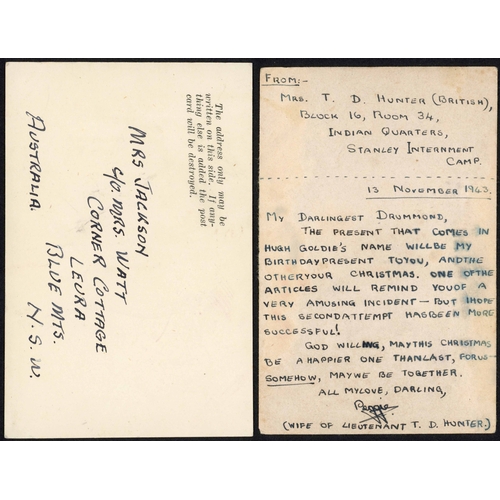 The address only may be
written on this side. If any-
thing else is added the post
card will be destroyed.
MRS JACKSON
C/O MRS. WATT
CORNER COTTAGE
LEURA
BLUE MTS.
N. S. W.
AUSTRALIA.
FROM:-
MRS. T. D. HUNTER (BRITISH),
BLOCK 16, ROOM 34,
INDIAN QUARTERS,
STANLEY INTERNMENT
CAMP.
13 NOVEMBER 1943.
MY DARLINGEST DRUMMOND,
THE PRESENT THAT COMES IN
HUGH GOLDIE'S NAME WILLBE MY
BIRTHDAYPRESENT TOYOU, ANDTHE
OTHERYOUR CHRISTMAS. ONE OFTHE
ARTICLES WILL REMIND YOUOF A
VERY AMUSING INCIDENT – BUT IHOPE
THIS SECONDATTEMPT HASBEEN MORE
SUCCESSFUL!
GOD WILLING, MAYTHIS CHRISTMAS
BE AHAPPIER ONE THANLAST, FORUS-
SOMEHOW, MAYWE BE TOGETHER.
ALL MYLOVE, DARLING,
Peggie
(WIFE OF LIEUTENANT T. D. HUNTER.)